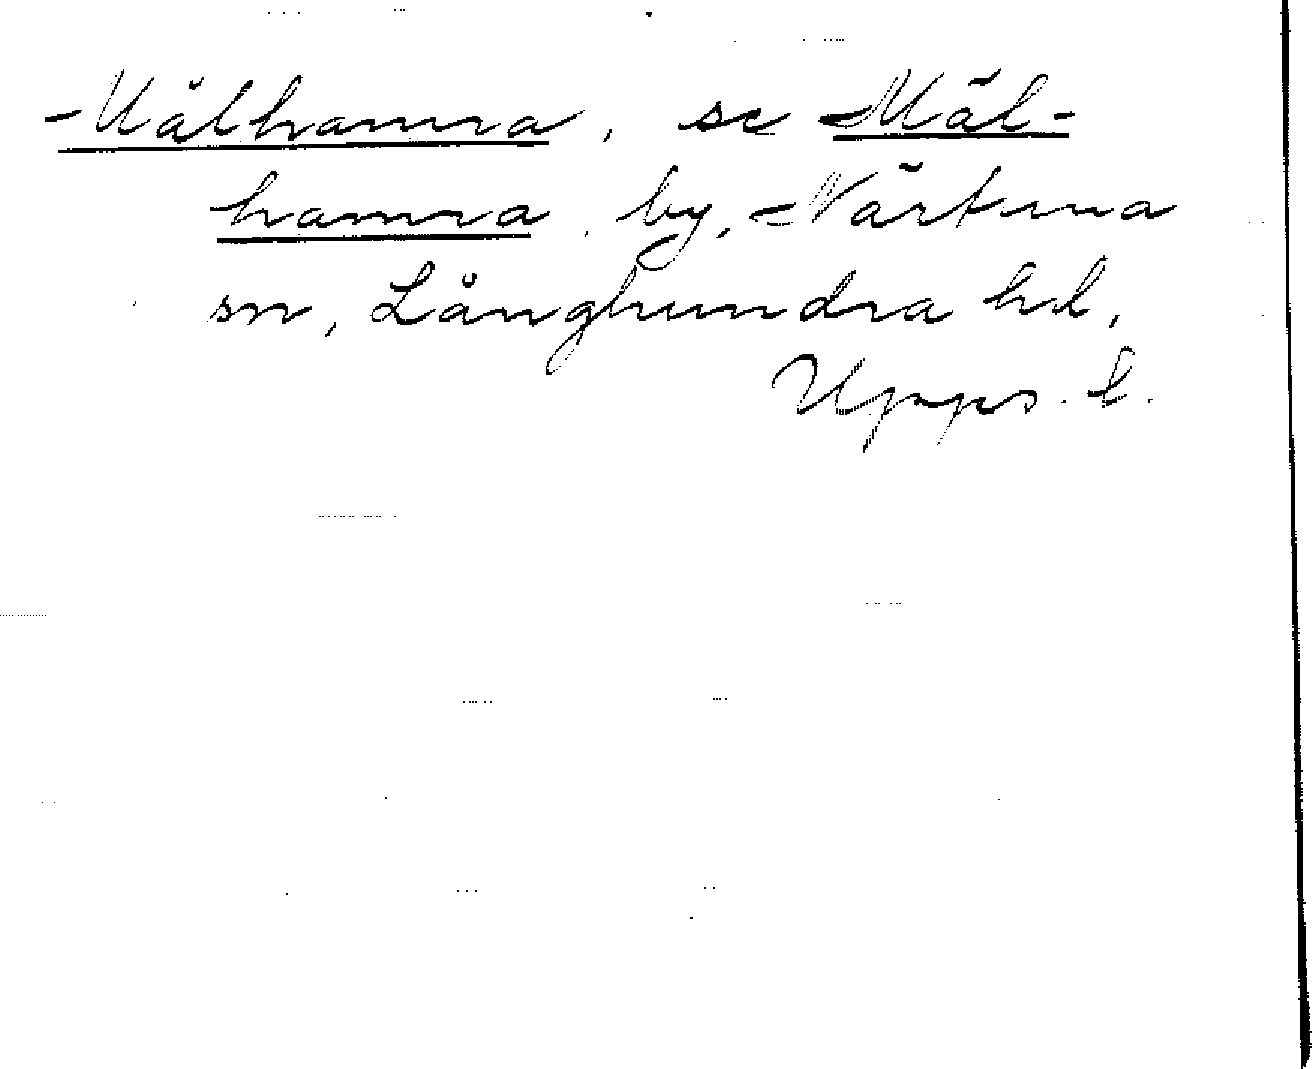 Målhamra, se Mäl-
hamra, by, Närtuna
sn, Långhundra hd,
Upps. l.